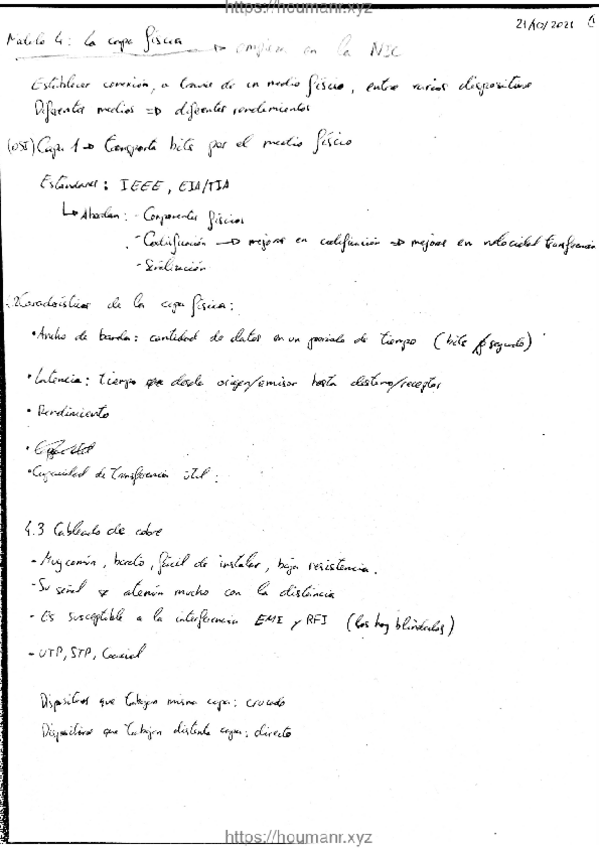 https://houmanr.xyz
21/10/2021 ①
Modulo 4: La capa física → empieza en la NIC
Establecer conexión, a traves de un medio físico, entre varios dispositivos
Diferentes medios => diferentes rendimientos
(OSI) Capa 1 → transporta bits por el medio físico
Estandares: IEEE, EIA/TIA
↳ Abordan: - Componentes físicos
- Codificación → mejoras en codificación → mejoras en velocidad transferencia
- Señalización
Caracteristicas de la capa física:
• Ancho de banda: cantidad de datos en un periodo de tiempo (bits / segundo)
• Latencia: tiempo que desde origen/emisor hasta destino/receptor
• Rendimiento
• Capacidad de transferencia útil:
4.3 Cableado de cobre
- Muy común, barato, fácil de instalar, baja resistencia.
- Su señal se atenúa mucho con la distancia
- Es susceptible a la interferencia EMI y RFI (los hay blindados)
- UTP, STP, Coaxial
Dispositivos que trabajan misma capa: cruzado
Dispositivos que trabajan distinta capa: directo
https://houmanr.xyz